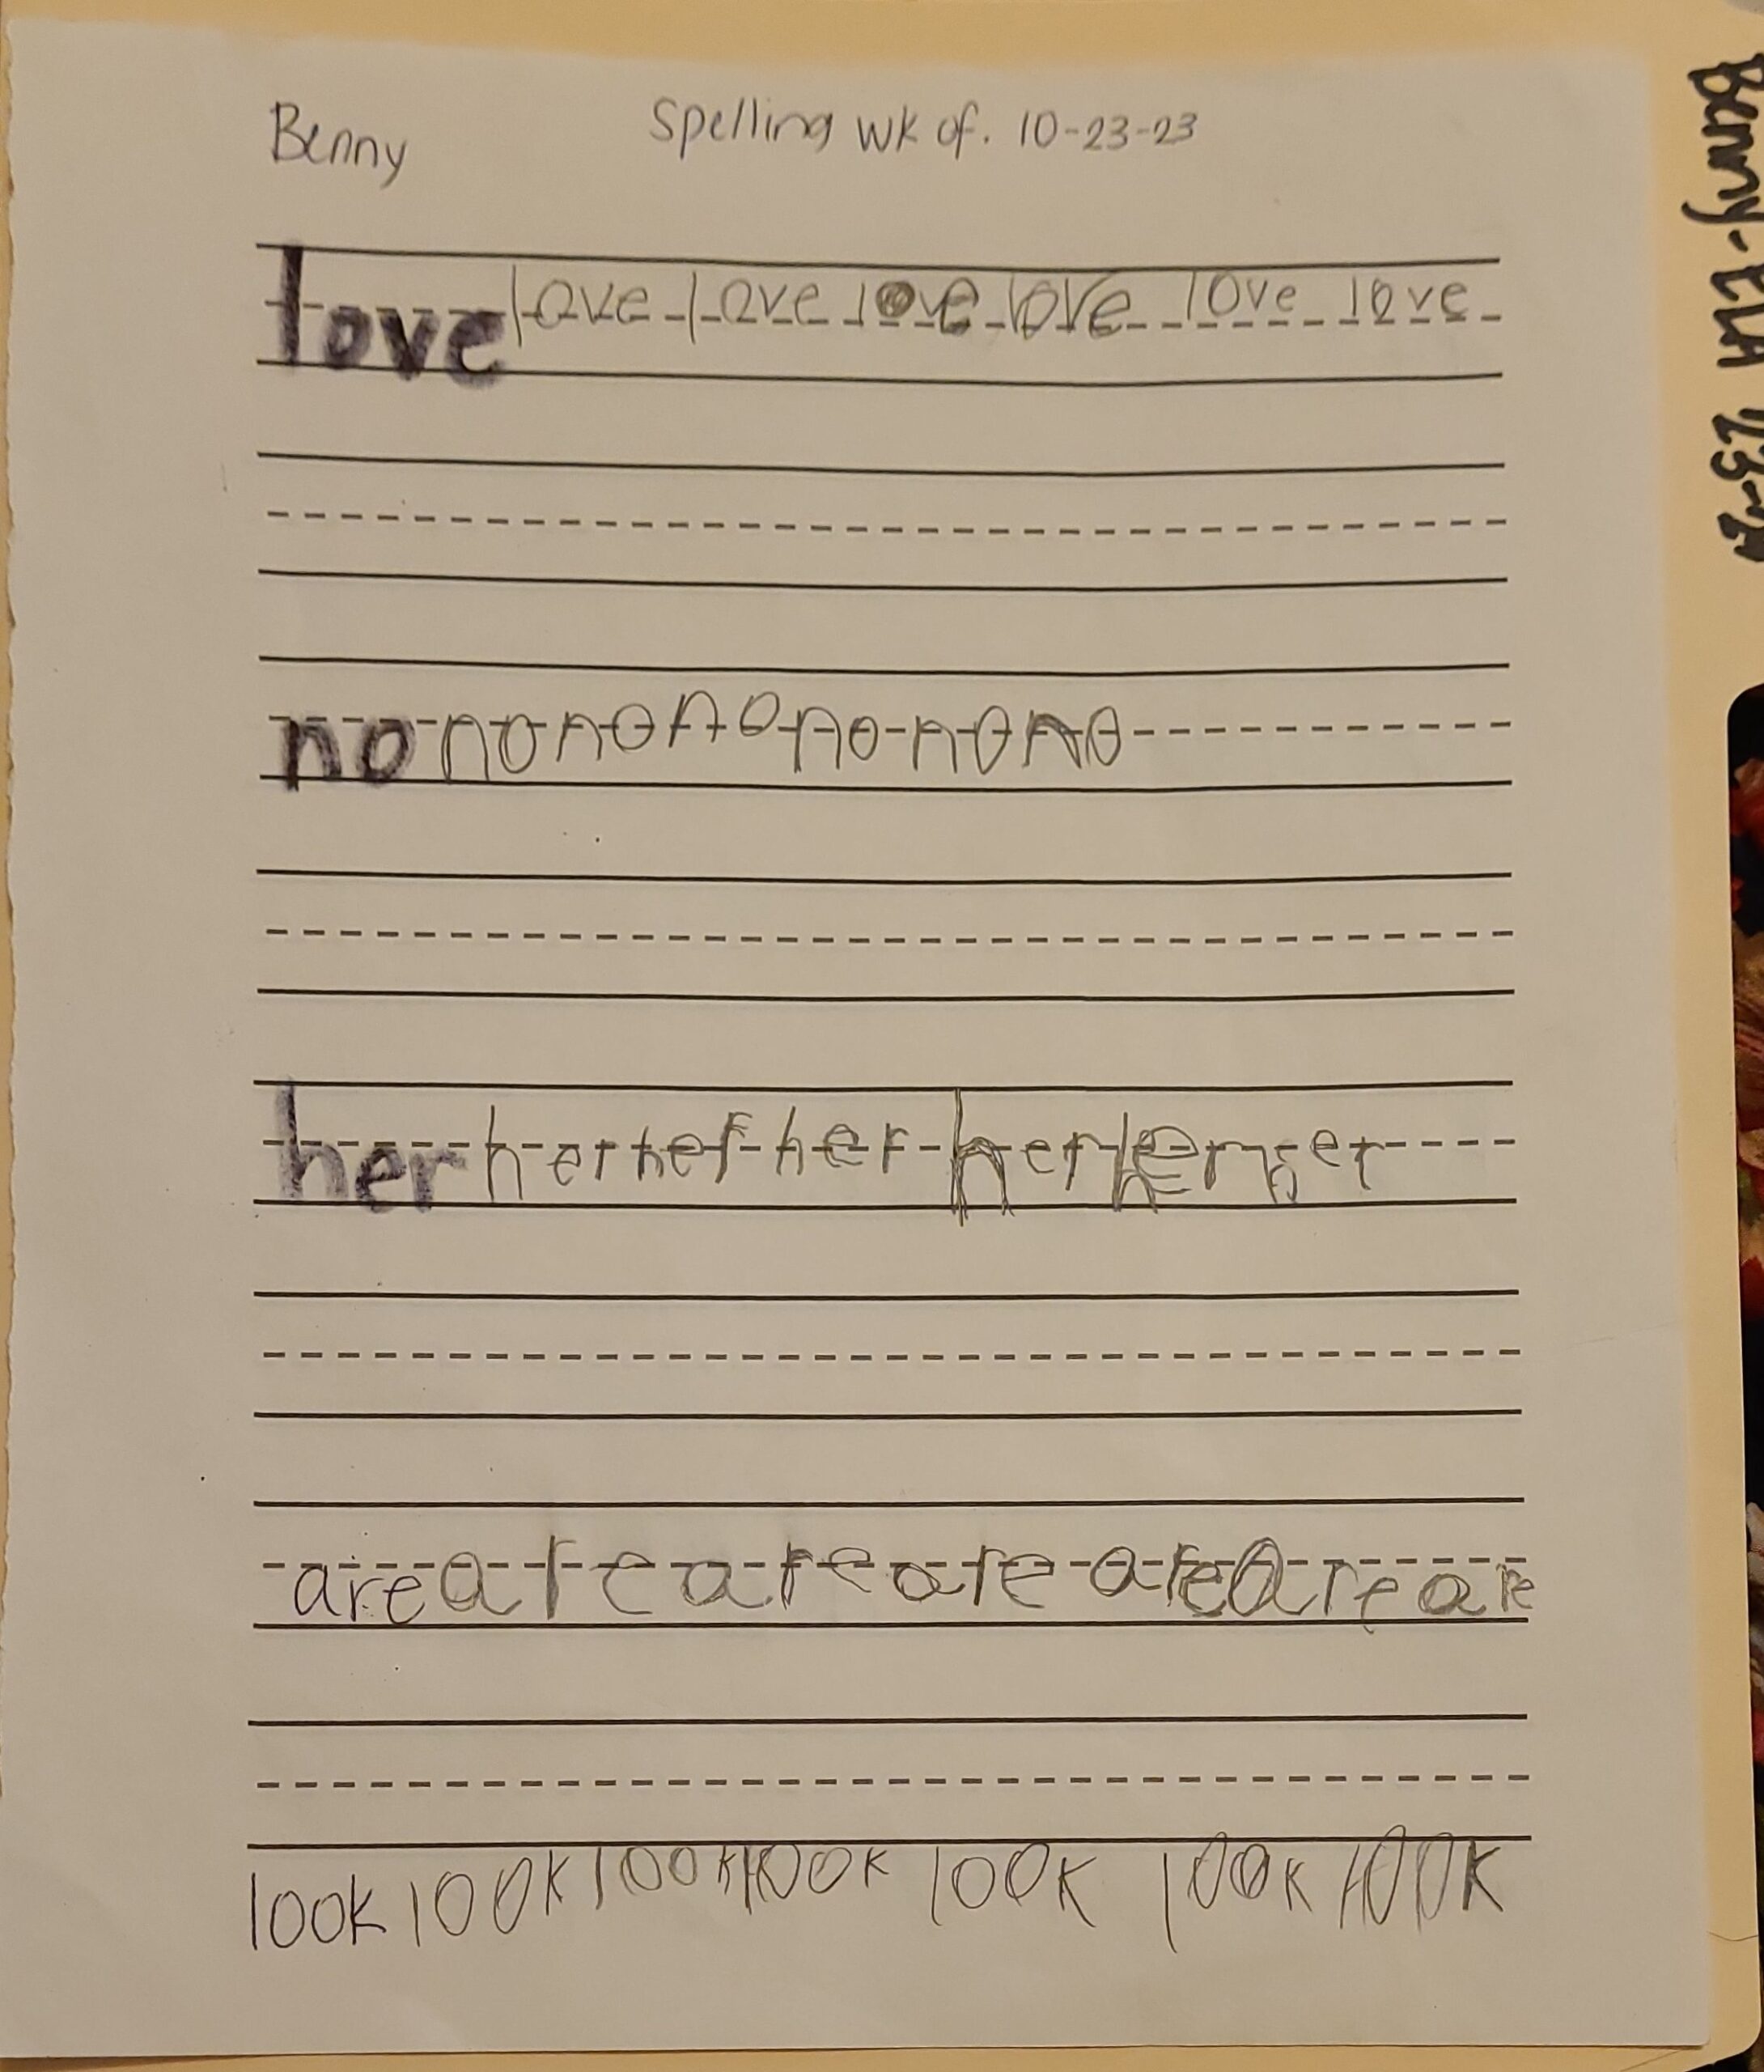 Benny Spelling wk of. 10-23-23
love love love love love love love
no no no no no no no
her her her her her her her
are are are are are are are
look look look look look look look
Benny-ELA 23-24